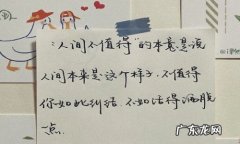 "人间不值得"的本意是说
人间本来是这个样子.不值得
你如此纠结.不如活得洒脱
一点.
广东龙网